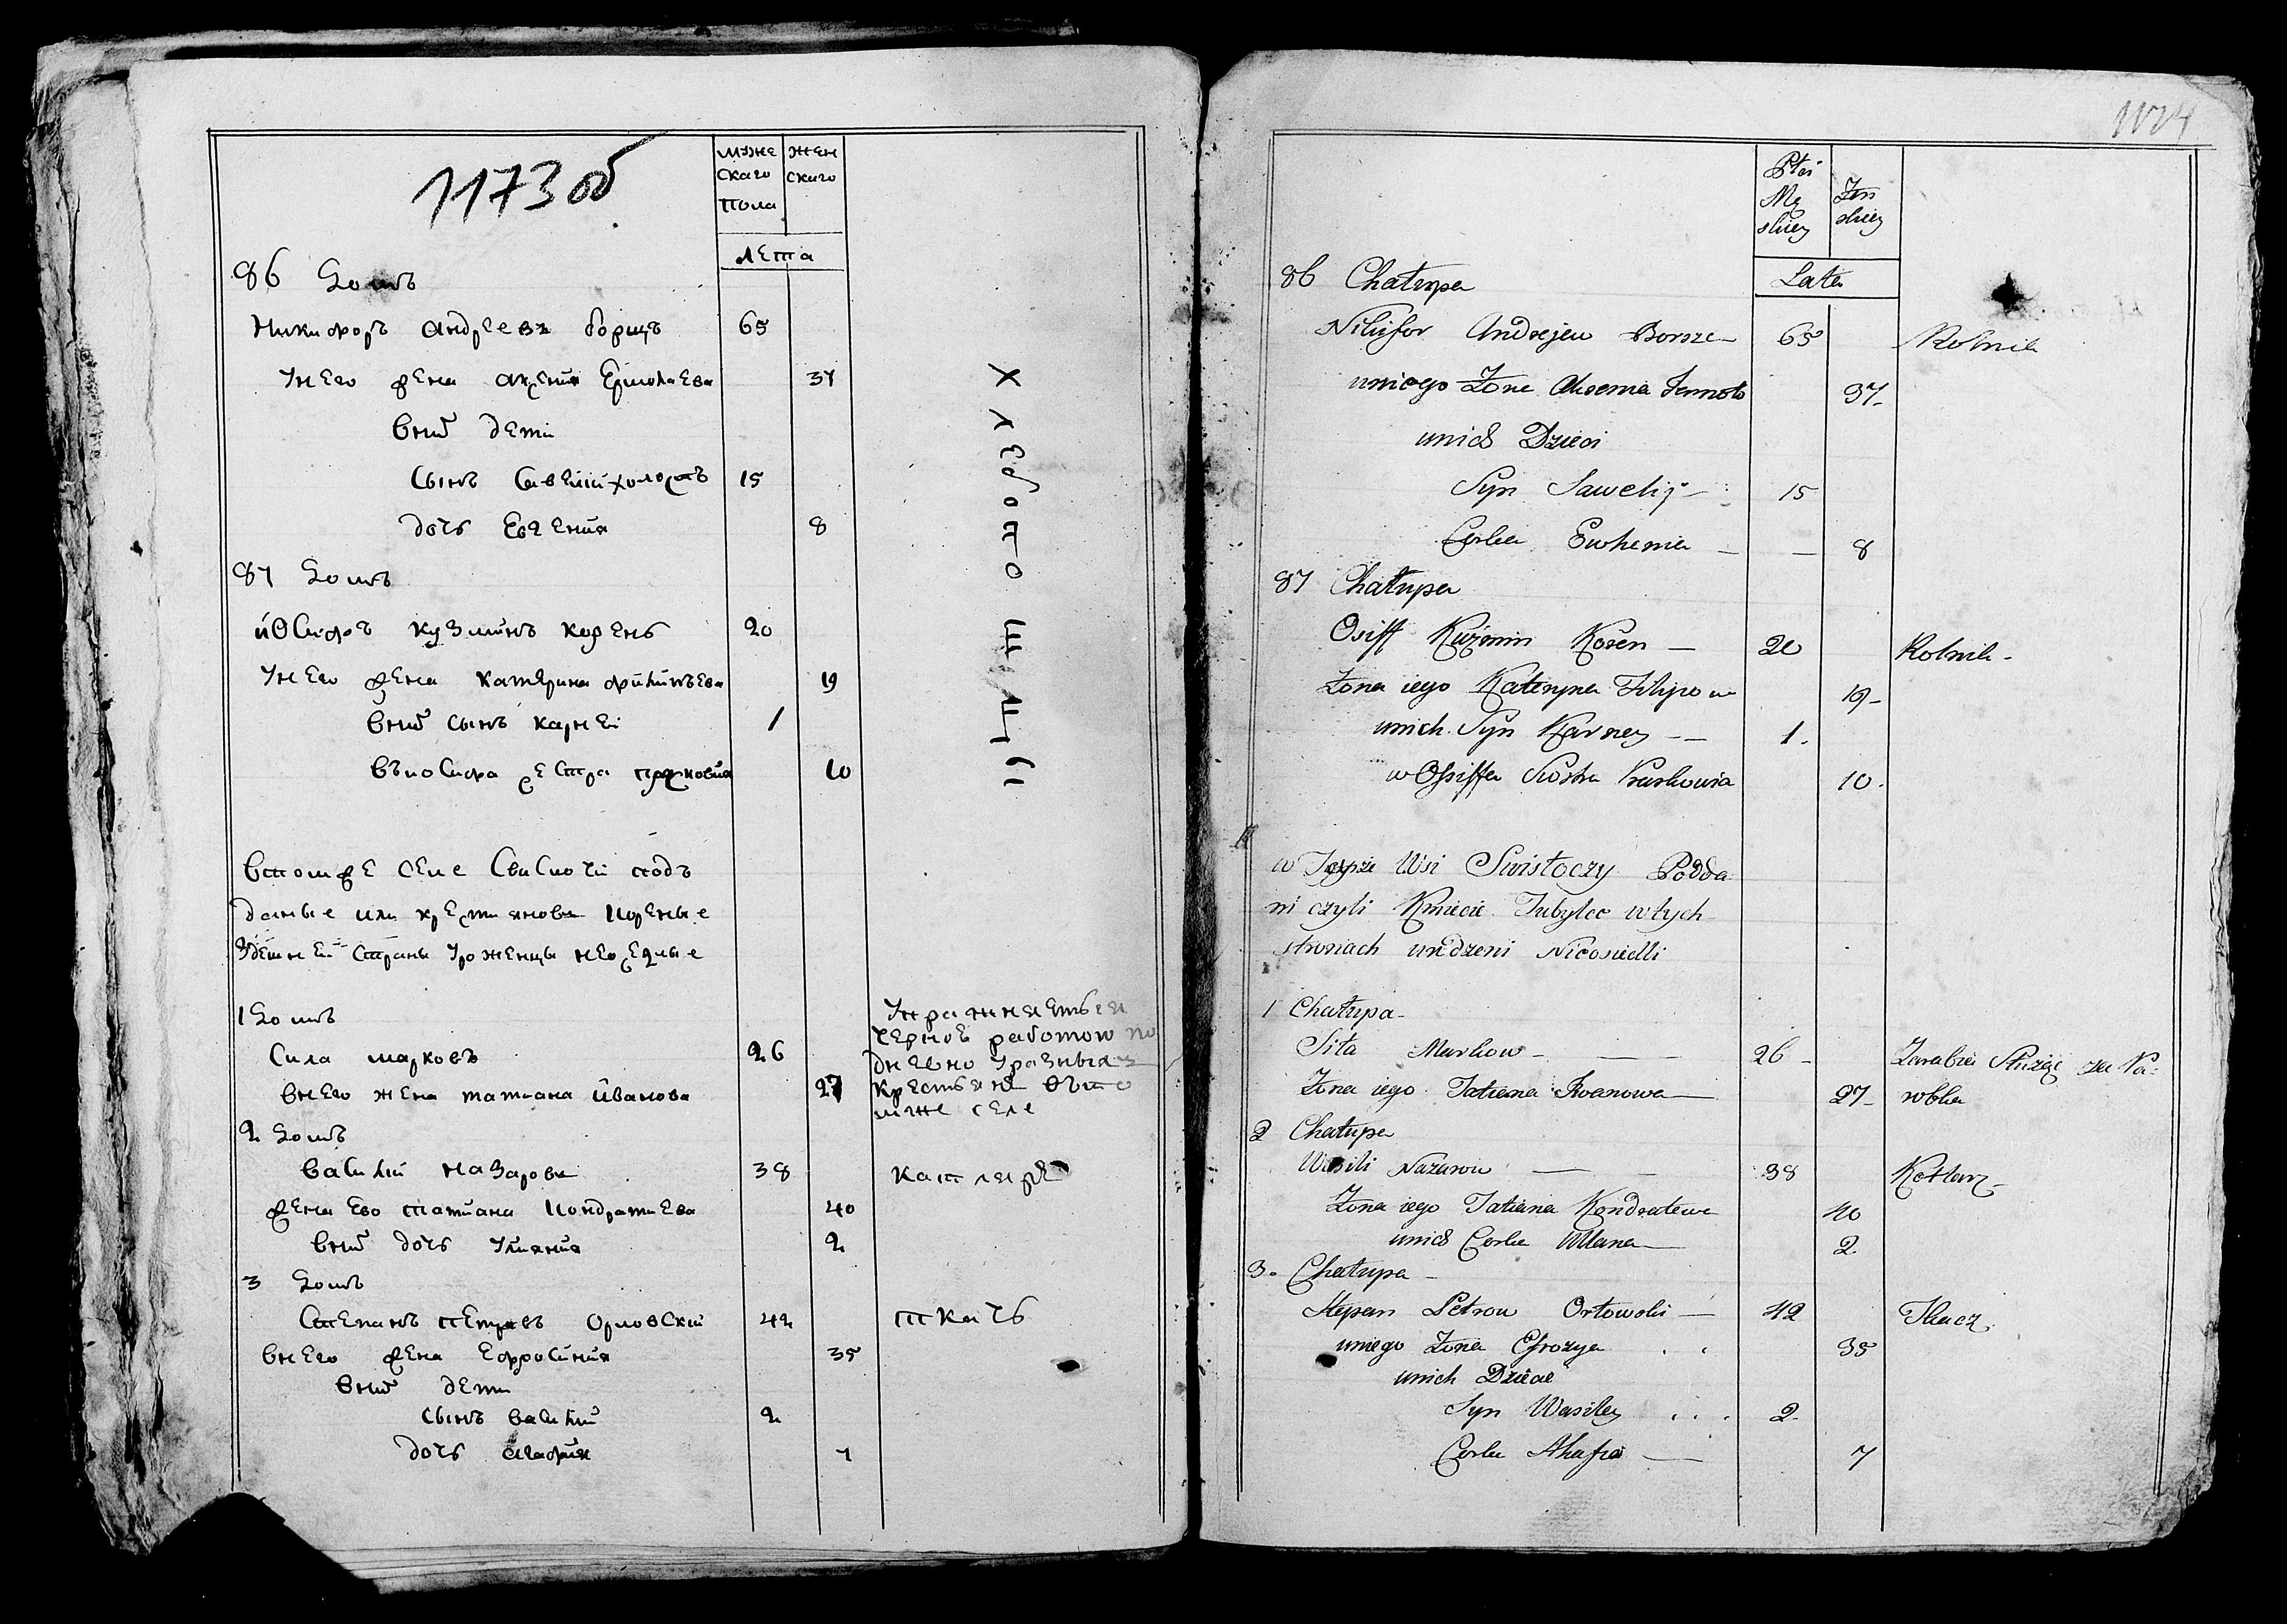 1173 об
муже
скаго
пола
жен
скаго
лета
86 Домъ
Никифоръ андреевъ борщъ 65
унего жена аксения Ермолаева 37
вних дети
Сынъ Савелий холостъ 15
дочь Евгения 8
87 Домъ
иосифъ кузминъ корень 20
унего жена катерина филипьева 19
вних сынъ карней 1
въиосифа сестра прасковия 10
хлебопашецы
втомже селе Свислочи подъ
даные или крестьянове кореные
здешней страны уроженцы неоселые
1 Домъ
Сила марковъ 26
внего жена татиана иванова 27
Упражняеться
черною работою по
дневно уразныхъ
крестьянъ вто
мже селе
2 Домъ
василий назаровъ 38 катляръ
жена ево татиана кондратиева 40
вних дочь улияния 2
3 Домъ
Степанъ петровъ Орловский 42 ткачь
внего жена Ефросиния 35
вних дети
сынъ василий 2
дочь агафия 7
1174
Płci
Mę
skiey
Żen
skiey
Lata
86 Chałupa
Nikifor Andrejew Borszcz 65 Rolnik
uniego Żona Aksenia Jermoło 37
unich Dzieci
Syn Sawelij 15
Corka Ewhenia 8
87 Chałupa
Osiff Kuźmin Koren 20 Rolnik
Żona iego Kateryna Filipow 19
unich Syn Karney 1.
w Ossiffa Siostra Praskowia 10.
w Teyże Wsi Swisłoczy Podda
ni czyli Kmiecie Tubylce wtych
stronach urodzeni Nieosiedli
1 Chałupa
Siła Markow 26 Zarabia Służąc za Pa-
Żona iego Tatiana Iwanowa 27 robka
2 Chałupa
Wasili Nazarow 38 Kotlarz
Żona iego Tatiana Kondratewa 40
unich Corka Ullana 2
3. Chałupa
Stepan Petrow Orłowski 42 Tkacz
uniego Żona Efrozya 35
unich Dzieci
Syn Wasiley 2
Corka Ahafia 7